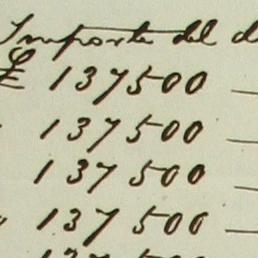 Importe del d
₤ 137500
137500
137500
137500
137500